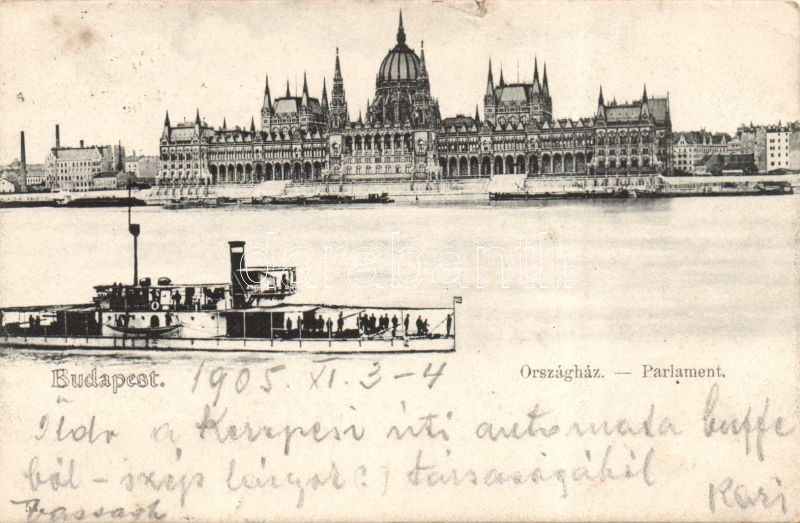 Darabanth.com
Budapest. 1905. XI. 3-4
Országház. — Parlament.
Üdv a Kerepesi úti automata buffe
ból - szép lányok(?) társaságából
Kari